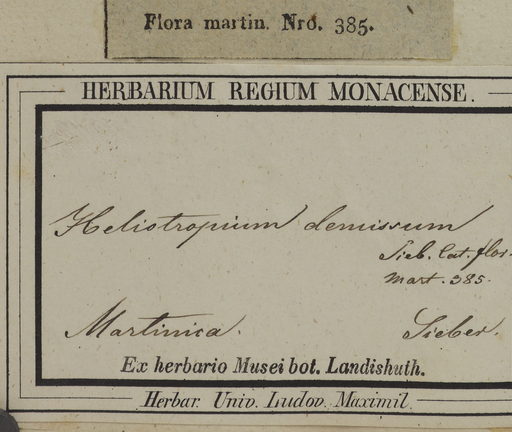 Flora martin. Nro. 385.
HERBARIUM REGIUM MONACENSE.
Heliotropium demissum
Sieb. Cat. flor.
mart. 385.
Martinica. Sieber.
Ex herbario Musei bot. Landishuth.
Herbar. Univ. Ludov. Maximil.